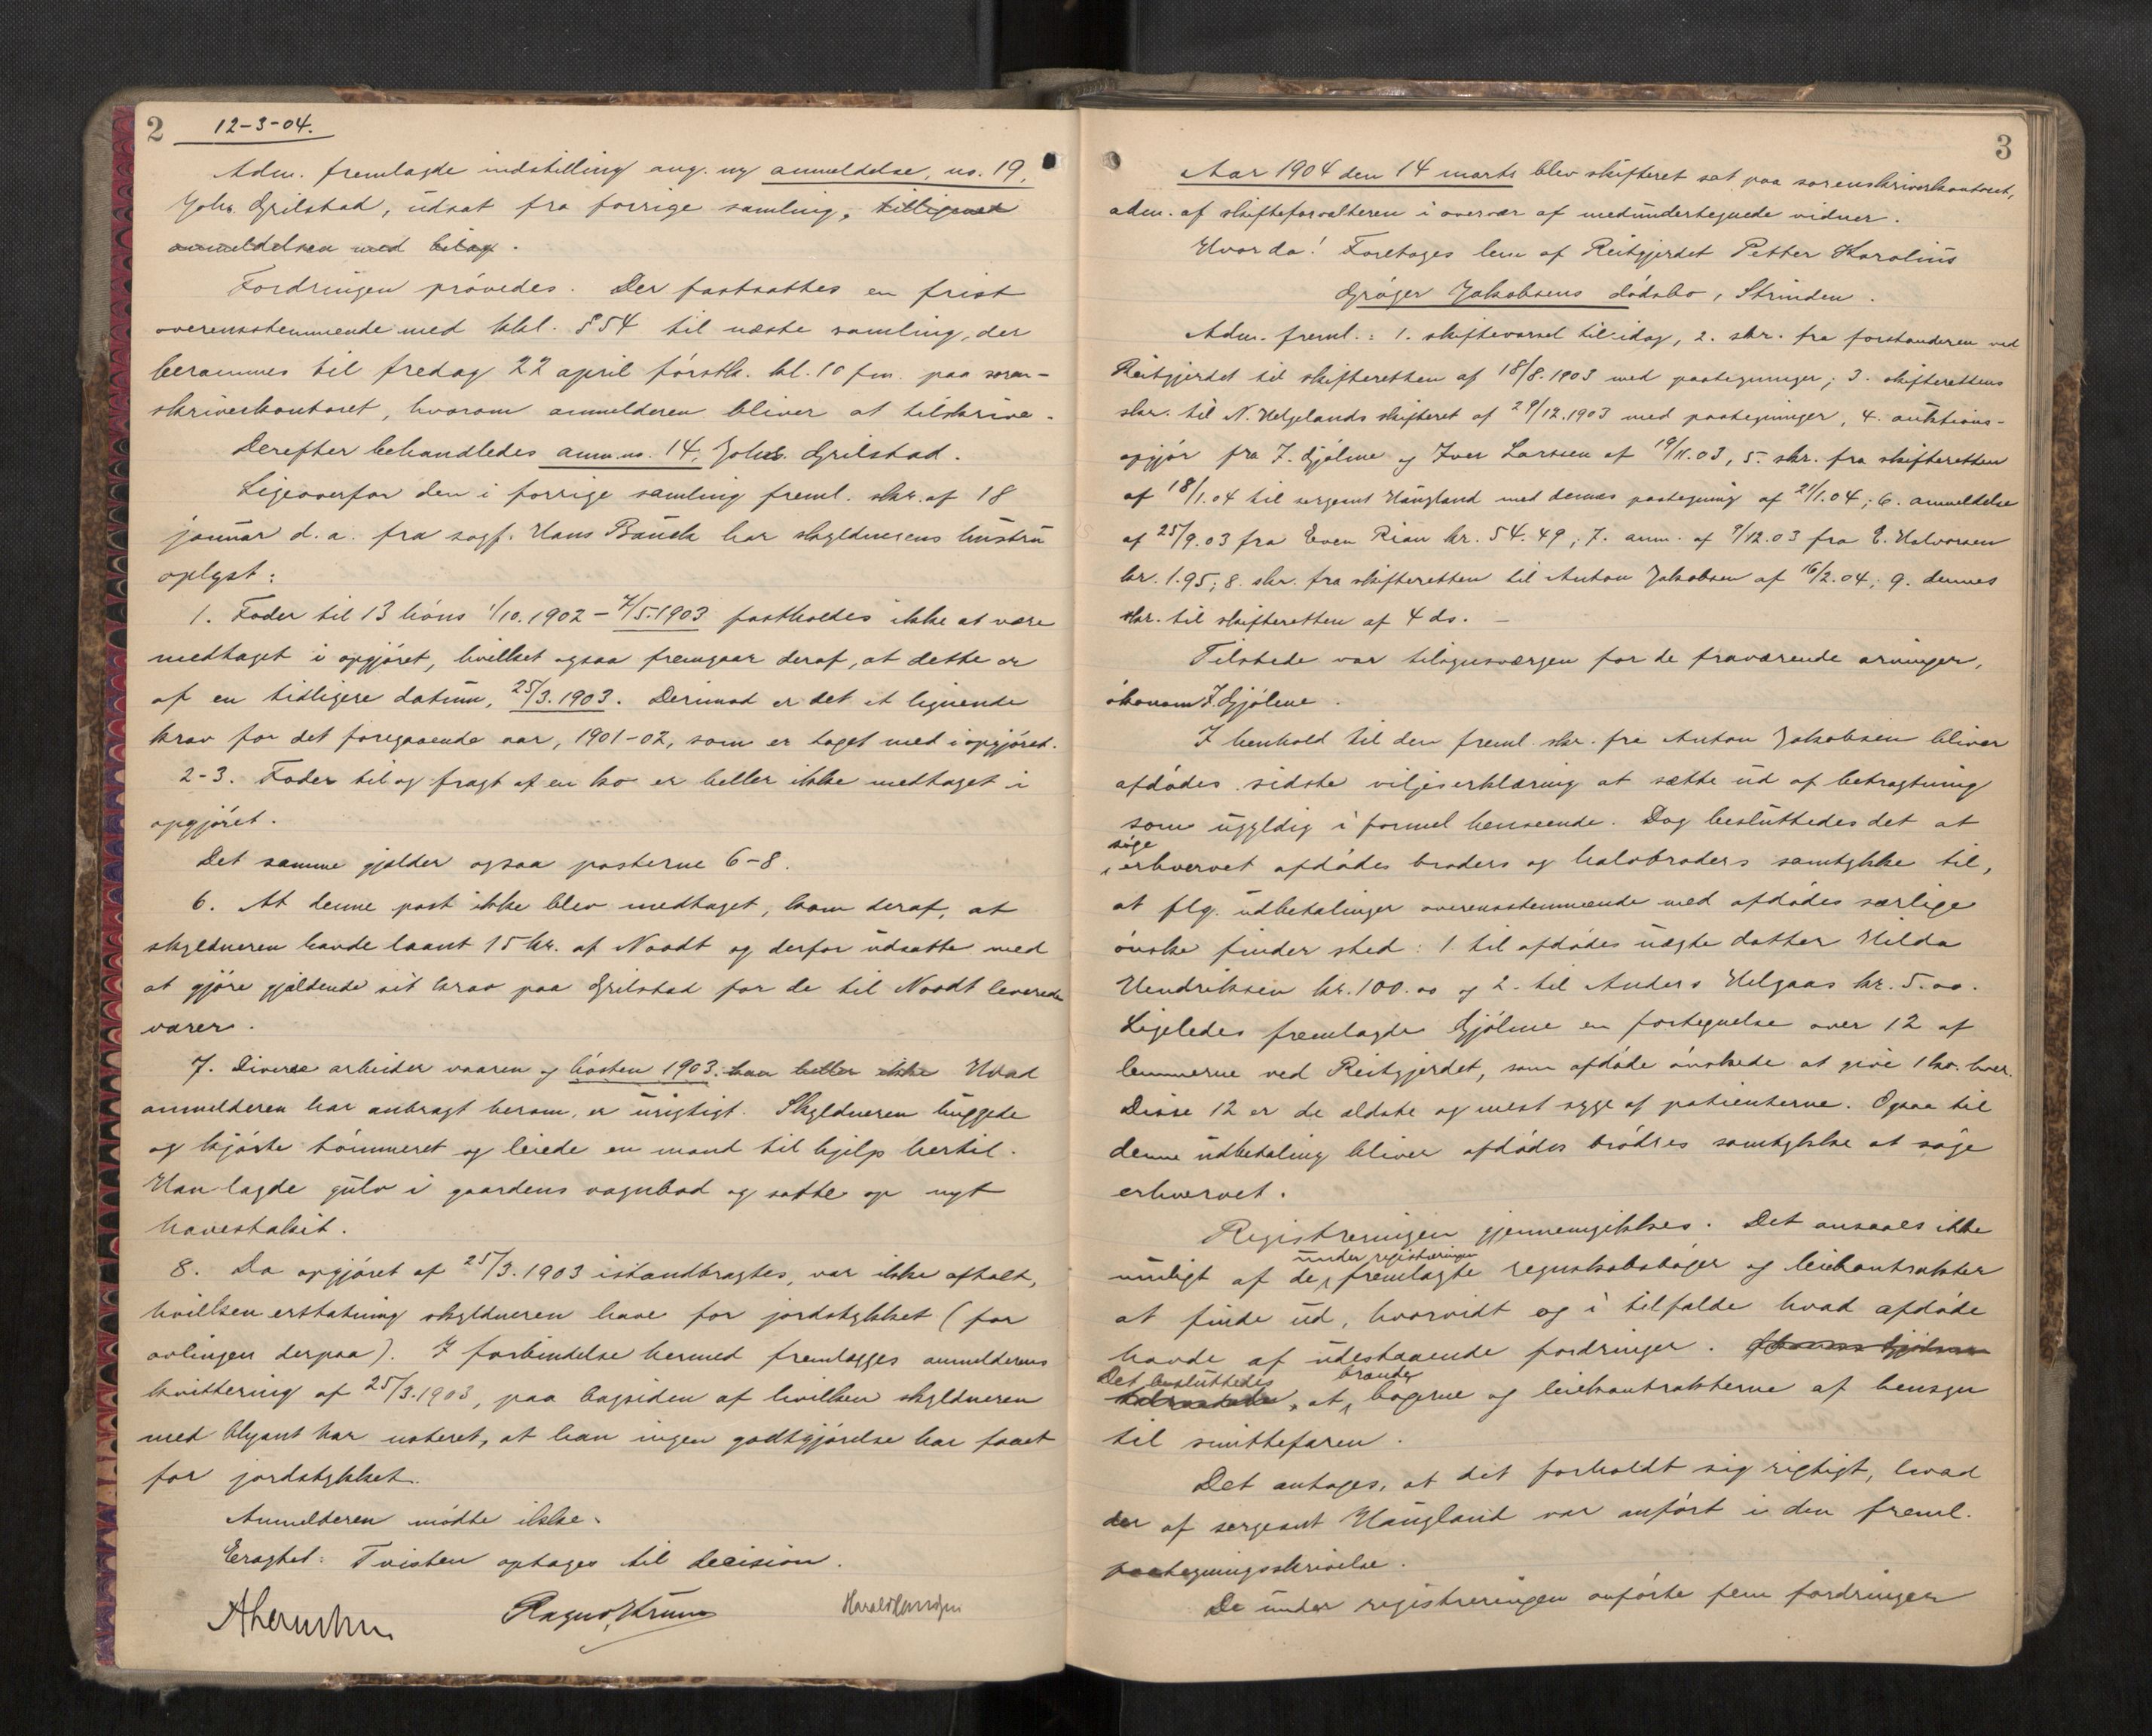 2 12-3-04.
Adm. fremlagde indstilling ang. ny anmeldelse, no. 19,
Johs. Grilstad, udsat fra forrige samling, tilligemed
anmeldelsen med bilag.
Fordringen prövedes. Der fastsattes en frist
overensstemmende med kkl. § 54 til næste samling, der
berammes til fredag 22 april förstk. kl. 10 fm. paa soren-
skriverkontoret, hvorom anmelderen bliver at tilskrive.
Derefter behandledes anm. no. 14, Johs. Grilstad.
Ligeoverfor den i forrige samling freml. skr. af 18
januar d. a. fra sagf. Hans Bauck har skyldnerens hustru
oplyst:
1. Foder til 13 höns 1/10.1902 - 7/5.1903 fastholdes ikke at være
medtaget i opgjöret, hvilket ogsaa fremgaar deraf, at dette er
af en tidligere datum, 25/3.1903. Derimod er det et lignende
krav for det foregaaende aar, 1901-02, som er taget med i opgjöret.
2-3. Foder til og fragt af en ko er heller ikke medtaget i
opgjöret.
Det samme gjælder ogsaa posterne 6-8.
6. At denne post ikke blev medtaget, kom deraf, at
skyldneren havde laant 15 kr. af Noodt og derfor udsatte med
at gjöre gjældende sit krav paa Grilstad for de til Noodt leverede
varer.
7. Diverse arbeider vaaren og hösten 1903. kan heller ikke Hvad
anmelderen har anbragt herom, er urigtigt. Skyldneren huggede
og kjörte tömmeret og leiede en mand til hjelp hertil.
Han lagde gulv i gaardens vognbod og satte op nyt
havestakit.
8. Da opgjöret af 25/3.1903 istandbragtes, var ikke aftalt,
hvilken erstatning skyldneren have for jordstykket (for
avlingen derpaa). I forbindelse hermed fremlægges anmelderens
kvittering af 25/3.1903, paa bagsiden af hvilken skyldneren
med blyant har noteret, at han ingen godtgjörelse har faaet
for jordstykket.
Anmelderen mödte ikke.
Eragtet: Tvisten optages til decision.
3
Aar 1904 den 14 marts blev skifteret sat paa sorenskriverkontoret,
adm. af skifteforvalteren i overvær af medundertegnede vidner.
Hvor da! Foretages lem af Reitgjerdet Petter Karolius
Gröger Jakobsens dödsbo, Strinden.
Adm. freml.: 1. skiftevarsel til idag, 2. skr. fra forstanderen ved
Reitgjerdet til skifteretten af 18/8.1903 med paategninger; 3. skifterettens
skr. til N. Helgelands skifteret af 29/12.1903 med paategninger, 4. auktions-
opgjör fra J. Gjölme og Iver Larssen af 19/11.03, 5. skr. fra skifteretten
af 18/1.04 til sergeant Haugland med dennes paategning af 21/1.04; 6. anmeldelse
af 25/9.03 fra Even Rian kr. 54.49; 7. anm. af 9/12.03 fra E. Halvorsen
kr. 1.95; 8. skr. fra skifteretten til Anton Jakobsen af 16/2.04; 9. dennes
skr. til skifteretten af 4 ds. -
Tilstede var tilsynsværgen for de fraværende arvinger,
ökonom J. Gjölme.
I henhold til den freml. skr. fra Anton Jakobsen bliver
afdödes sidste viljeserklæring at sætte ud af betragtning
som ugyldig i formel henseende. Dog besluttedes det at
söge
erhvervet afdödes broders og halvbroders samtykke til,
at flg. udbetalinger overensstemmende med afdödes særlige
önske finder sted: 1. til afdödes uægte datter Hilda
Hendriksen kr. 100.00 og 2. til Anders Helgaas kr. 5.00.
Ligeledes fremlagde Gjölme en fortegnelse over 12 af
lemmerne ved Reitgjerdet, som afdöde önskede at give 1 kr. hver.
Disse 12 er de ældste og mest syge af patienterne. Ogsaa til
denne udbetaling bliver afdödes brödres samtykke at söge
erhvervet.
Registreringen gjennemgikkes. Det ansaaes ikke
under registreringen
muligt af de fremlagte regnskabsböger og leiekontrakter
at finde ud, hvorvidt og i tilfælde hvad afdöde
havde af udestaaende fordringer. Ökonom Gjölme
Det besluttedes brænde
tilraadede, at bögerne og leiekontrakterne af hensyn
til smittefaren.
Det antoges, at det forholdt sig rigtigt, hvad
der af sergeant Haugland var anfört i den freml.
paategningsskrivelse.
De under registreringen anförte fem fordringer